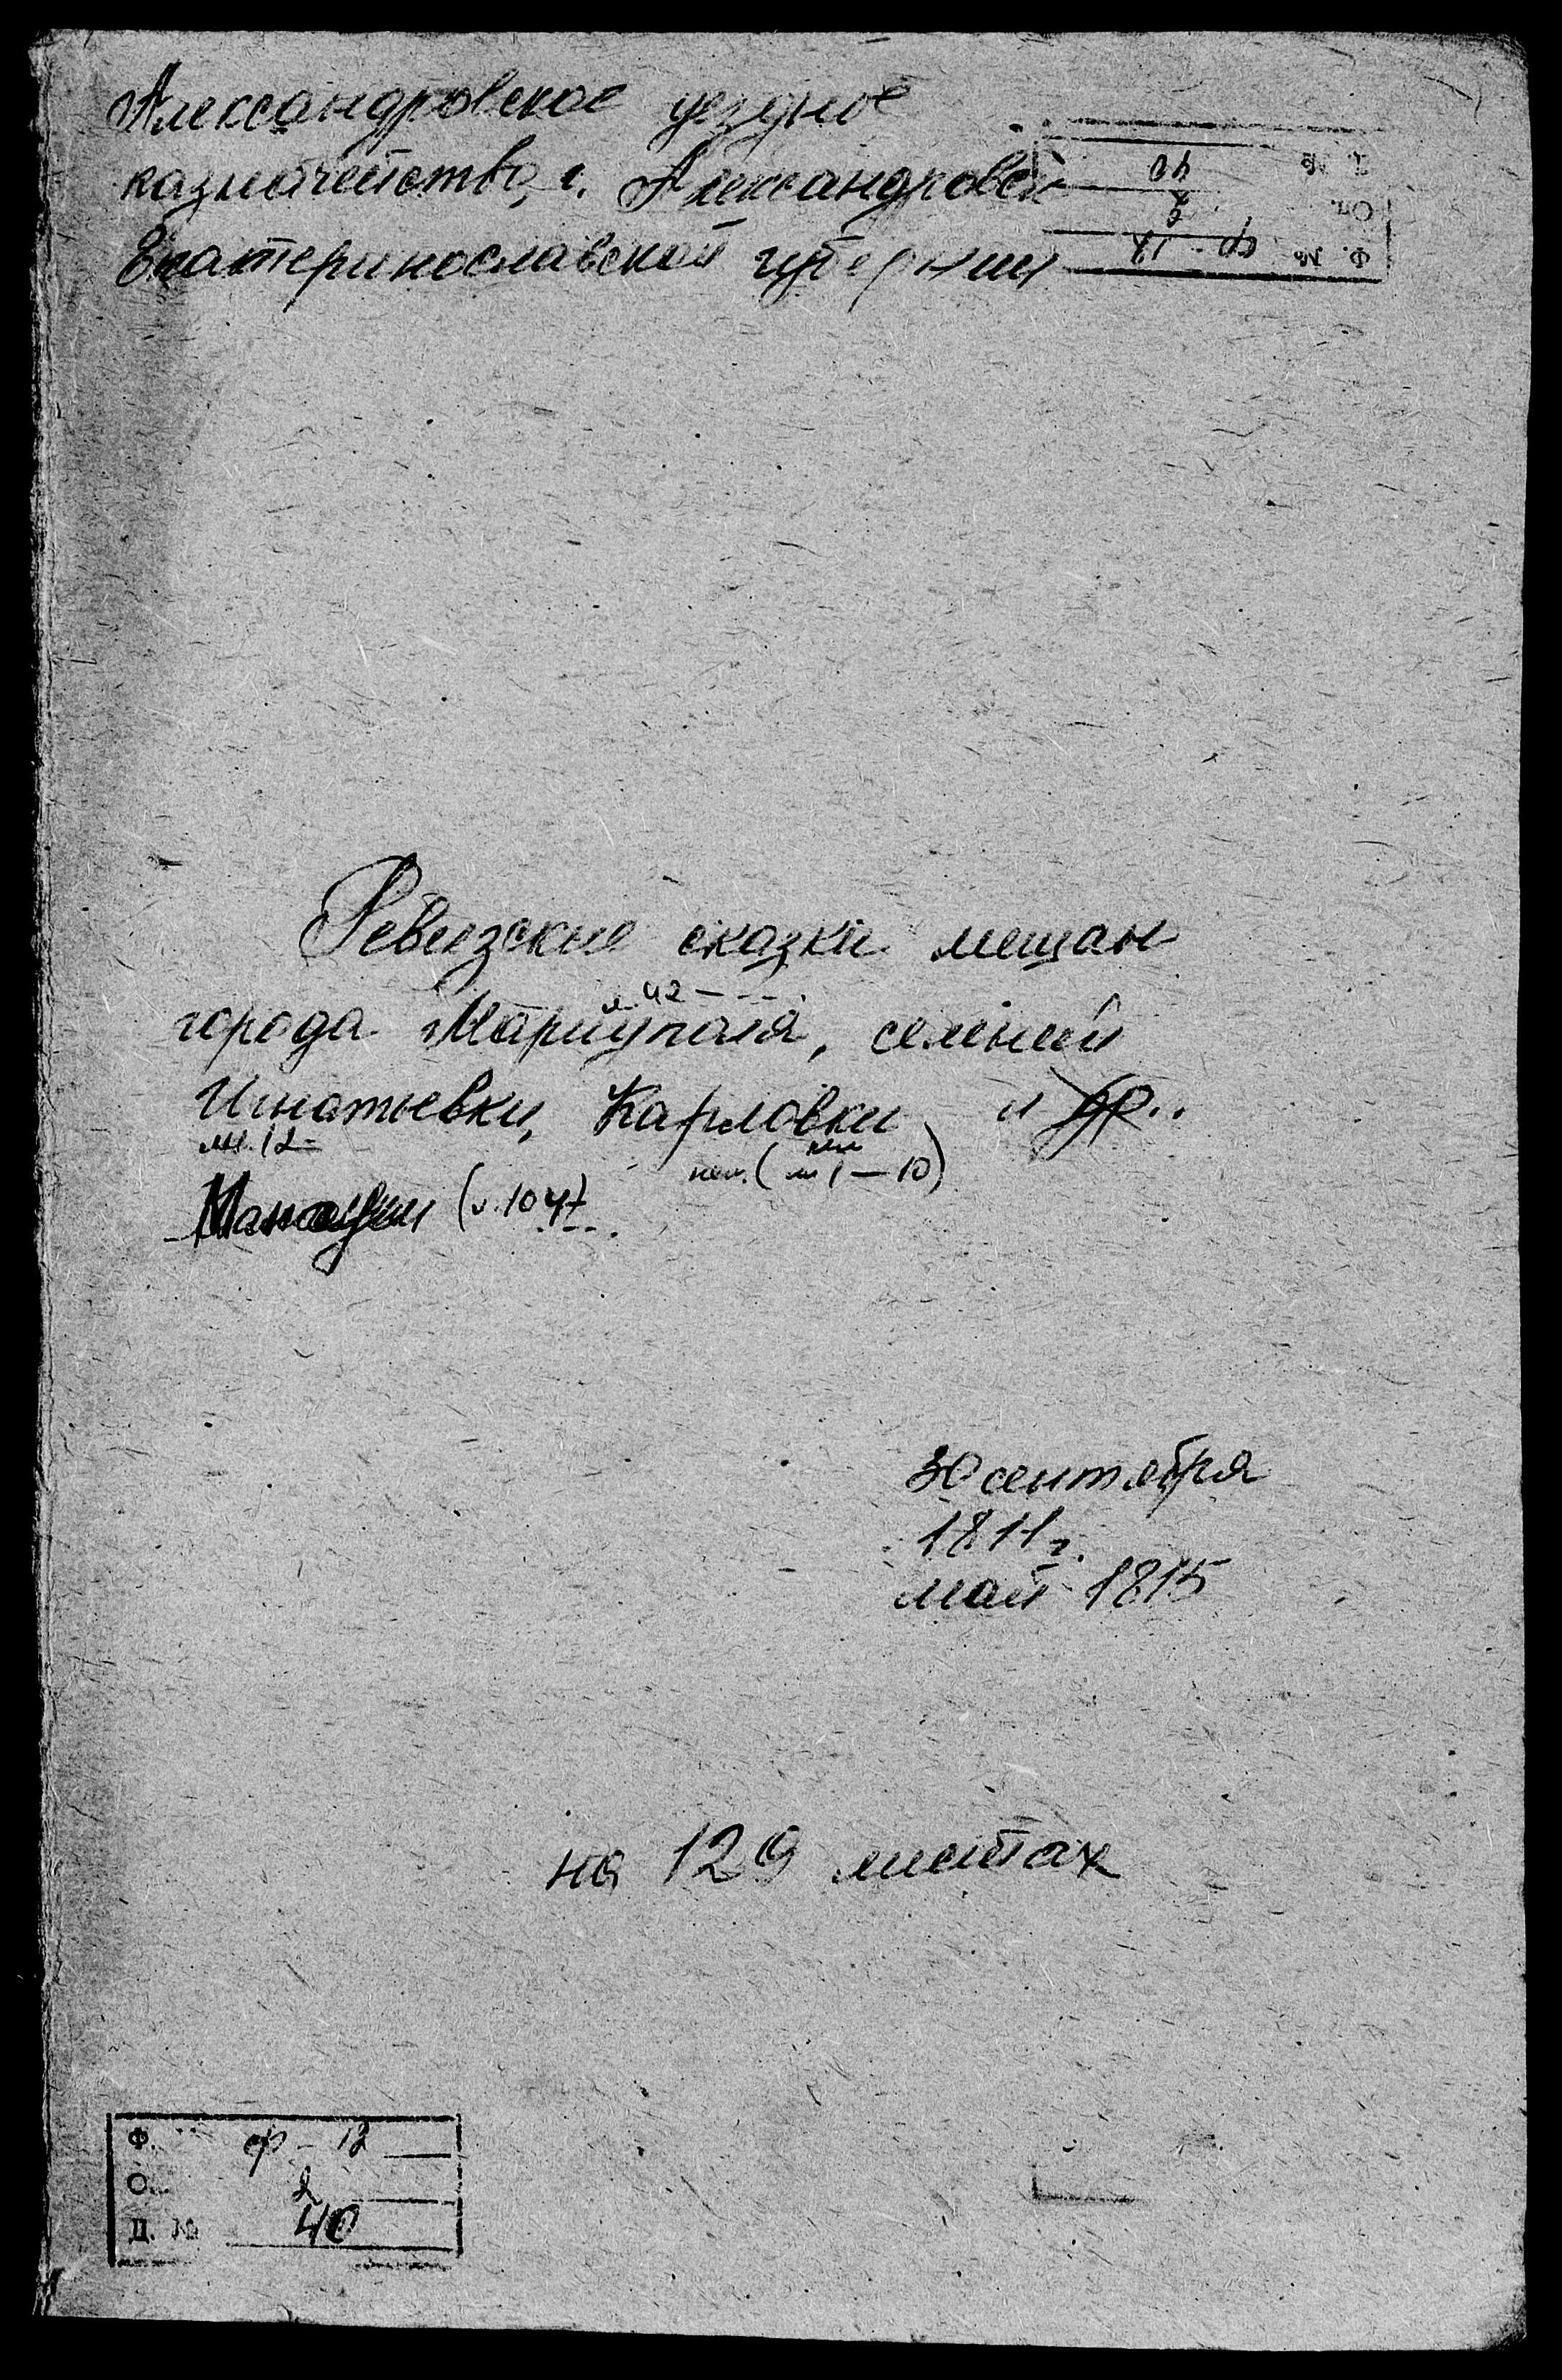 Александровское уездное
казначейство, г. Александровск
Екатеринославской губернии
Д. № 40
Оп. 2
Ф. № ф-12
Ревизские сказки мещан
л. 42 - - -
города Мариуполя, селений
Игнатьевки, Карловки и др.
лл. 12-
(лл 1-10)
(л. 104)
30 сентября
1811 г.
май 1815
на 129 листах
Ф. ф-12
О. 2
Д. № 40